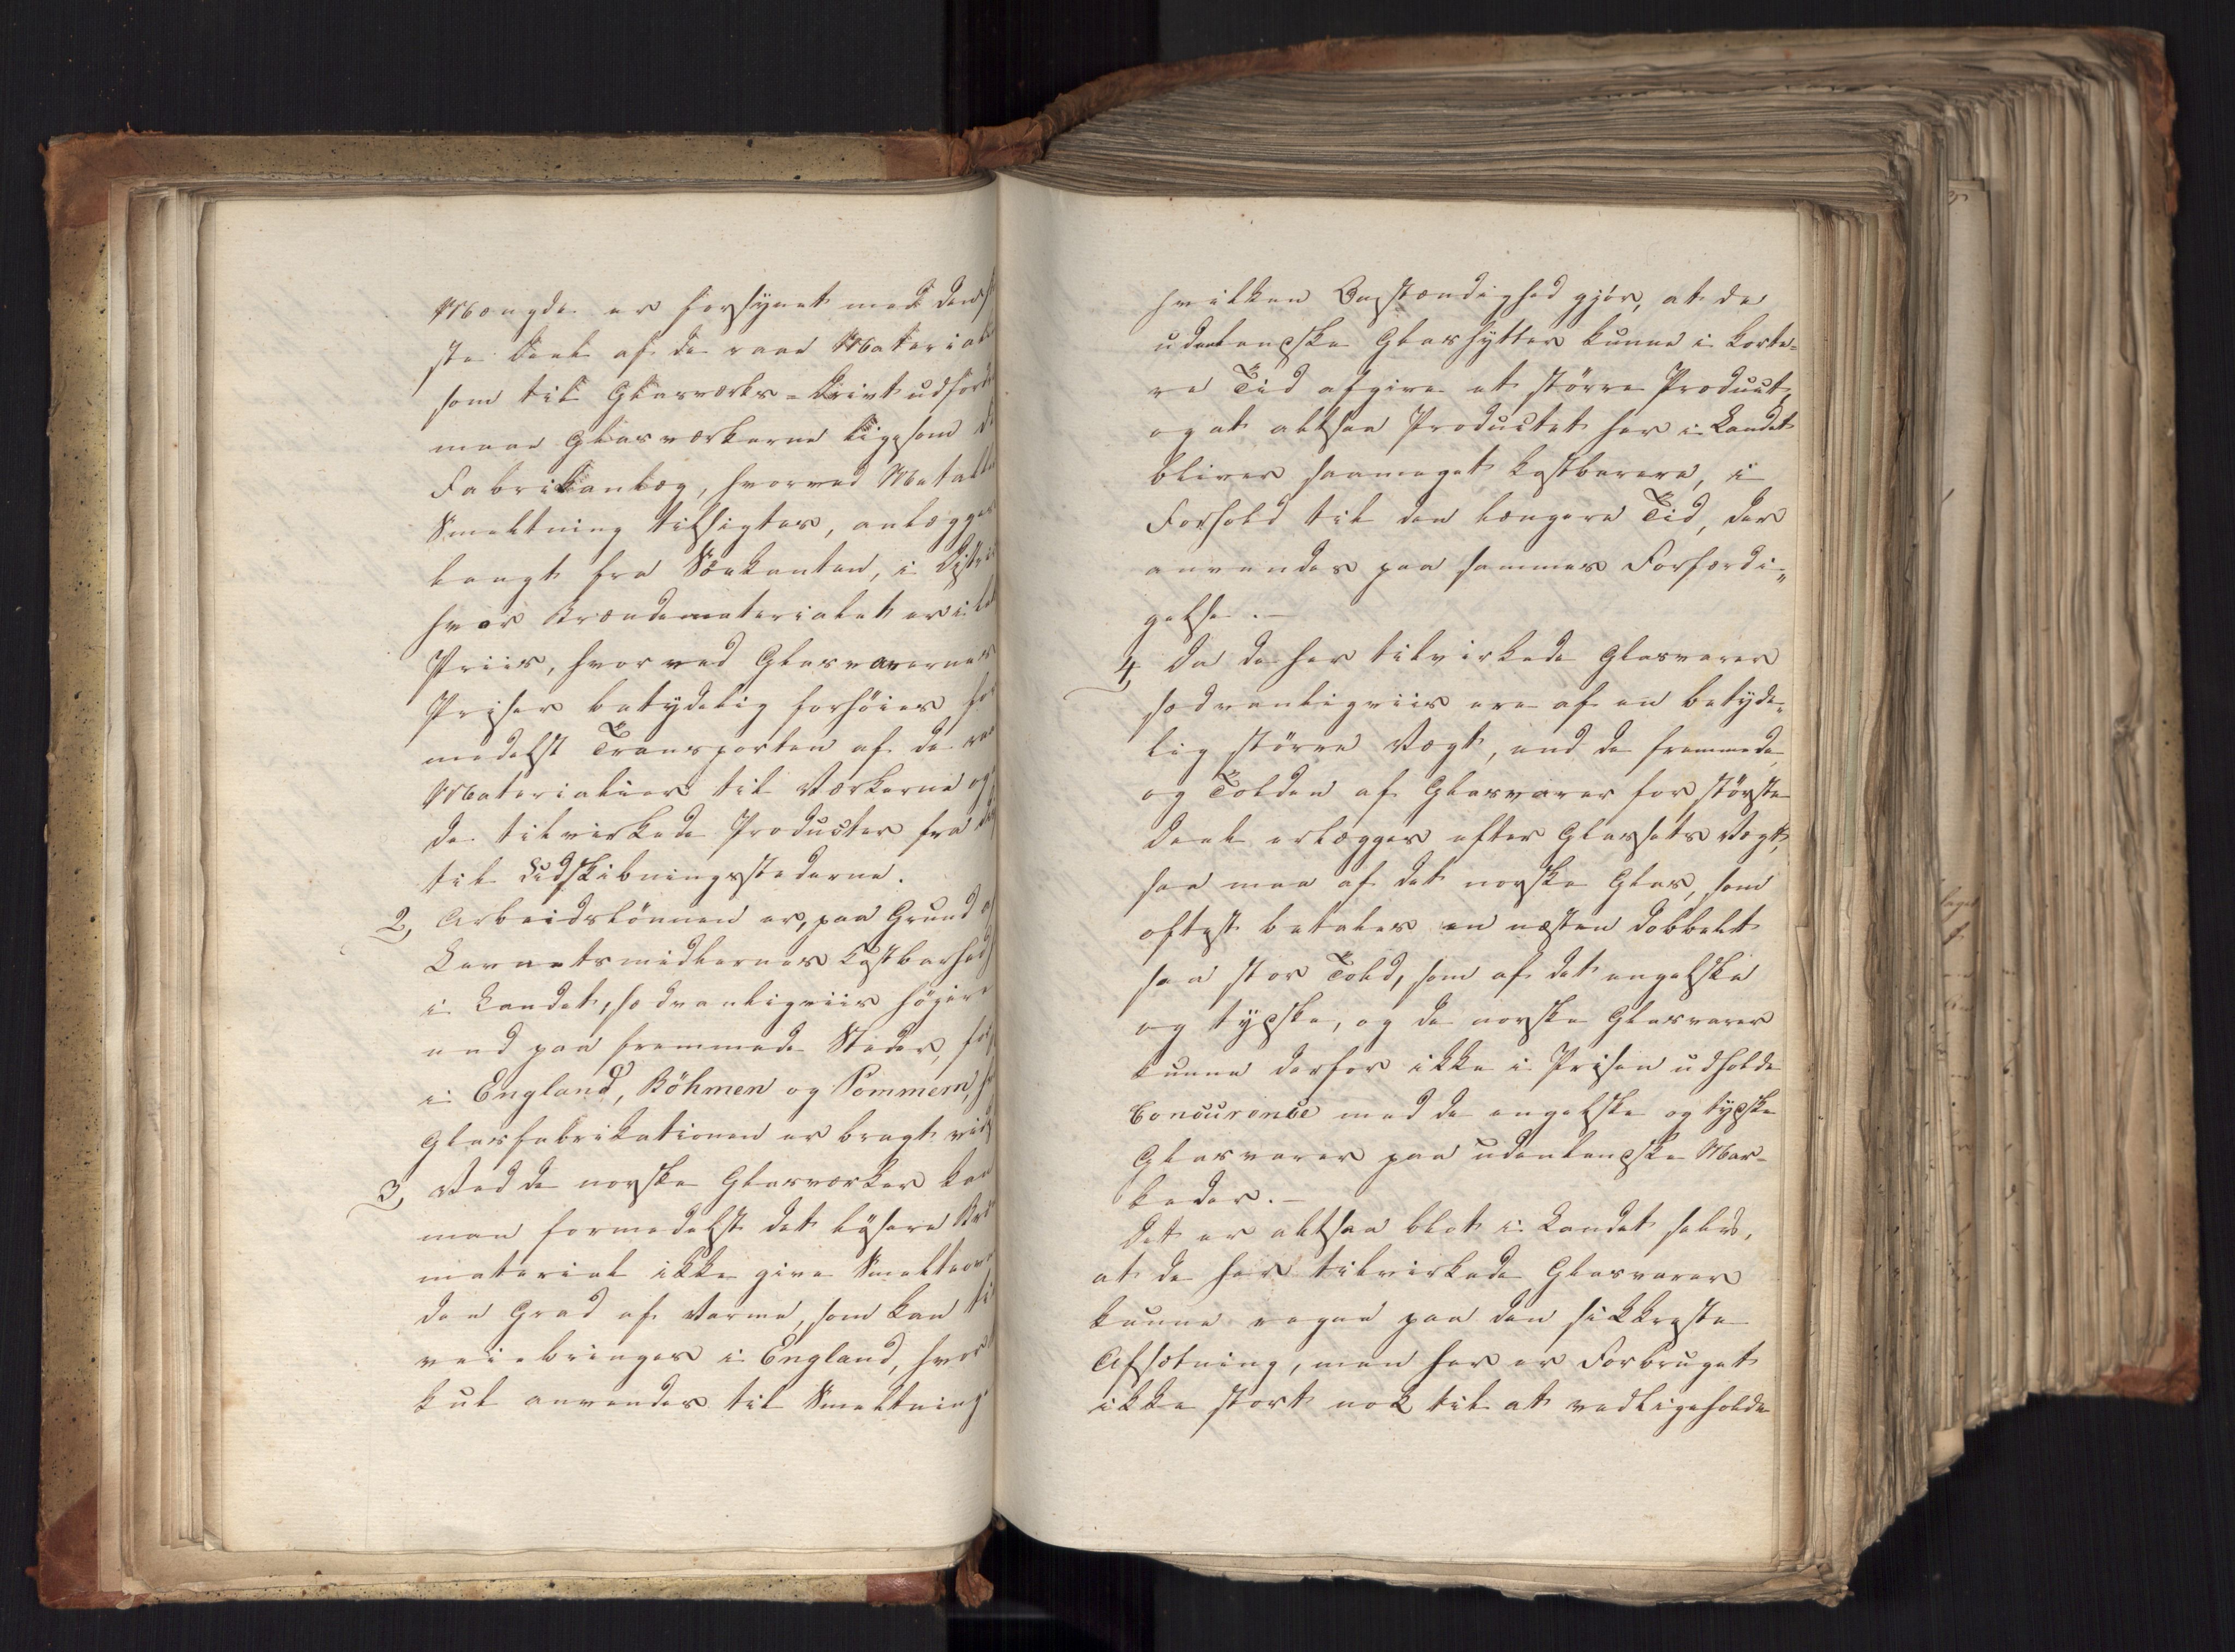 Mængde er forsynet med den
ste Deel af de raae Materiali
som til Glasværks-Drivt udford
maae Glasværkerne ligesom
Fabrikanlæg, hvorved Metall
Smeltning tilsigtes, anlægges
langt fra Søekanten, i Distri
hvor Brændematerialet er i
Priis, hvorved Glasvarernes
Priser betydelig forhøies for
medelst Transporten af de raa
Materialier til Værkerne og
de tilvirkede Producter fra
til Udskibningsstederne.
2, Arbeidslønnen er, paa Grund af
Levnetsmidlernes Kostbarhed
i Landet, sædvanligviis høgere
end paa fremmede Steder,
i England, Böhmen og Pommern,
Glasfabrikationen er bragt vidt
3, Ved de norske Glasværker kan
man formedelst det løsere Bræ
material ikke give Smelteov
den Grad af Varme, som kan
veiebringes i England, hvor
kul anvendes til Smeltning
hvilken Omstændighed gjør, at de
udenlandske Glashytter kunne i korte-
re Tid afgive et større Product,
og at altsaa Productet her i Landet
bliver saameget kostbarere, i
Forhold til den længere Tid, der
anvendes paa sammes Forfærdi-
gelse.-
4, Da de her tilvirkede Glasvarer
sædvanligviis ere af en betyde-
lig større Vægt, end de fremmede,
og Tolden af Glasvarer for største
Deel erlægges efter Glassets Vægt,
saa maa af det norske Glas, som
oftest betales en næsten dobbelt
saa stor Told, som af det engelske
og tydske, og de norske Glasvarer
kunne derfor ikke i Prisen udholde
Concurence med de engelske og tydske
Glasvarer paa udenlandske Mar-
keder.-
Det er altsaa blot i Landet selv,
at de her tilvirkede Glasvarer
kunne regne paa den sikkreste
Afsætning, men her er Forbruget
ikke stort nok til at vedligeholde